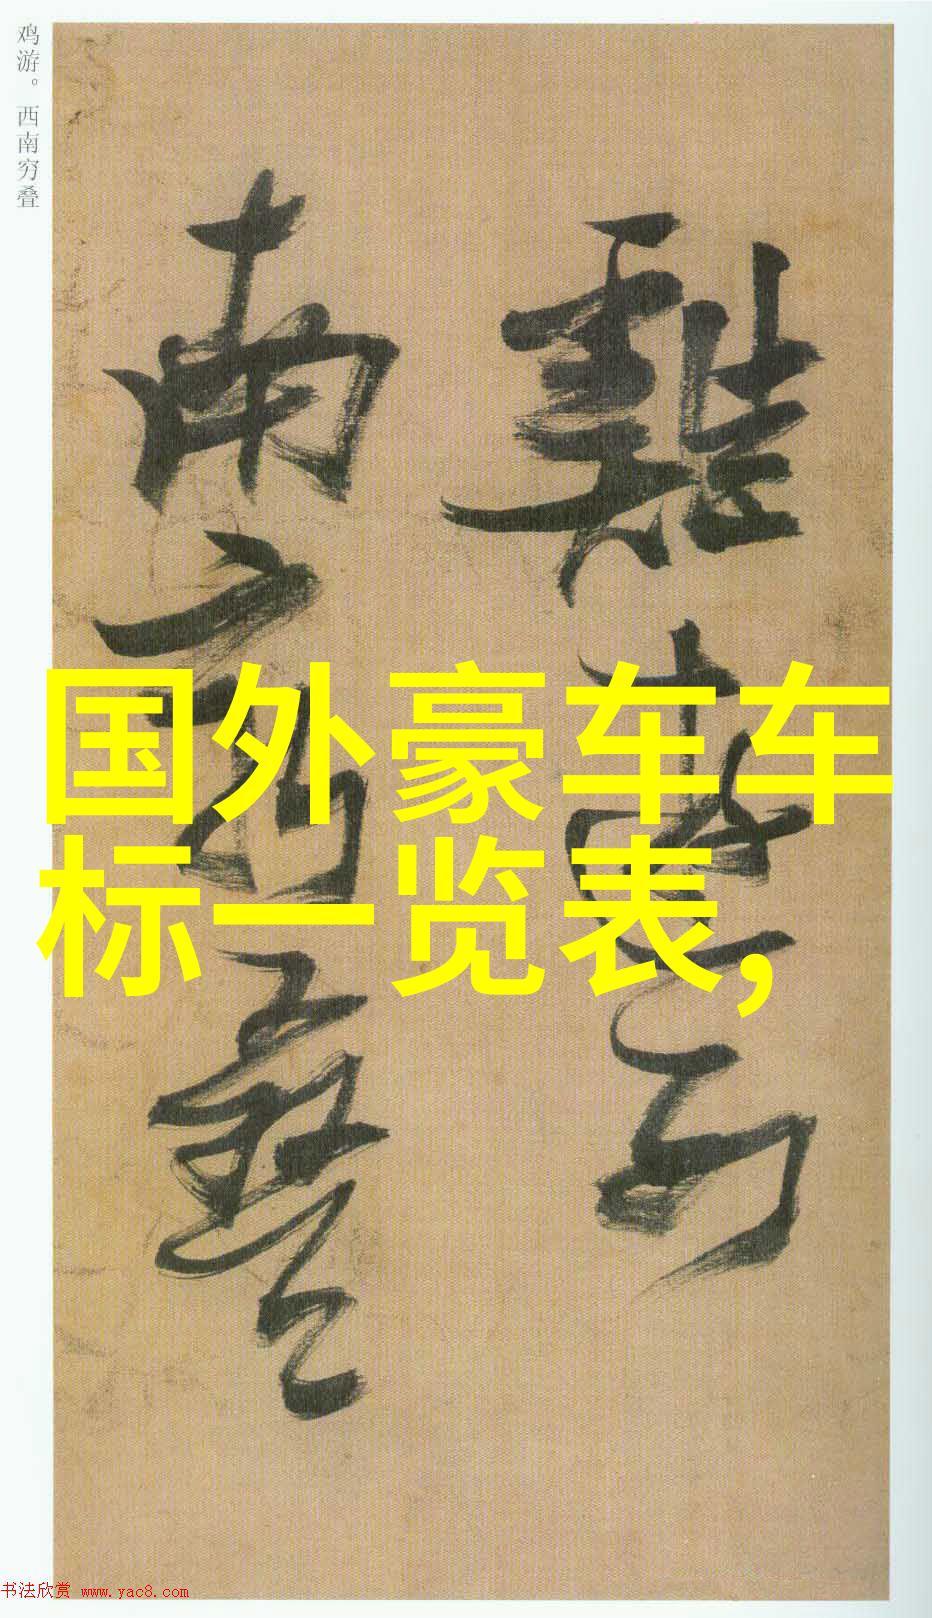 鸡游。西南穷叠
雞遊西
南穷叠
国外豪车车
标一览表,
书法欣赏 www.yac8.com